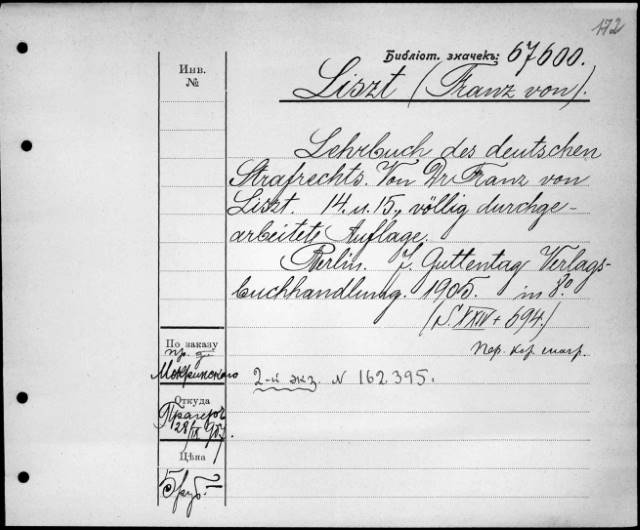 172
Библіот. значекъ: 67600.
Инв.
№
Liszt (Franz von).
Lehrbuch des deutschen
Strafrechts. Von Dr Franz von
Liszt. 14. u. 15., völlig durchge-
arbeitete Auflage.
Berlin. J. Guttentag Verlags-
buchhandlung. 1905. in 8º.
(S. XXIV + 694.)
Пер. кор.
По заказу
пр. д.
Мокринскаго
2-й экз. N 162.395.
Откуда
Прагеръ
28/IX 907.
Цѣна
5 руб.